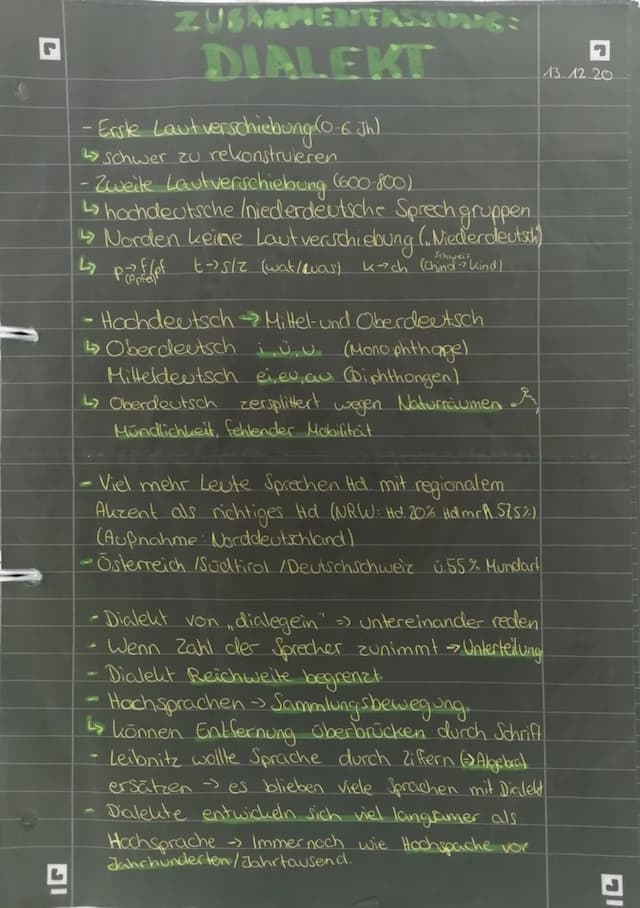 ZUSAMMENFASSUNG:
DIALEKT
13.12.20
- Erste Lautverschiebung (0-6. Jh)
↳ schwer zu rekonstruieren
- Zweite Lautverschiebung (600-800)
↳ hochdeutsche/niederdeutsche Sprechgruppen
↳ Norden keine Lautverschiebung (Niederdeutsch)
↳ p→f/pf t→s/z (wat/was) k→ch (Chind→Kind)
(Apfel)
Schweiz
- Hochdeutsch → Mittel- und Oberdeutsch
↳ Oberdeutsch i, ü, u (Monophthage)
Mitteldeutsch ei, eu, au (Diphthongen)
↳ Oberdeutsch zersplittert wegen Naturräumen
Mündlichkeit, fehlender Mobilität
- Viel mehr Leute Sprechen Hd mit regionalem
Akzent als richtiges Hd (NRW: Hd. 20% Hd mr A. 57,5%)
(Außnahme: Norddeutschland)
- Österreich /Südtirol /Deutschschweiz ü.55% Mundart
- Dialekt von „dialegein" => untereinander reden
- Wenn Zahl der Sprecher zunimmt → Unterteilung
- Dialekt Reichweite begrenzt
- Hochsprachen → Sammlungsbewegung
↳ können Entfernung überbrücken durch Schrift
- Leibnitz wollte Sprache durch Ziffern (→Algebra)
ersätzen → es blieben viele Sprachen mit Dialekt
- Dialekte entwickeln sich viel langsamer als
Hochsprache → Immernoch wie Hochspache vor
Jahrhunderten/Jahrtausend.